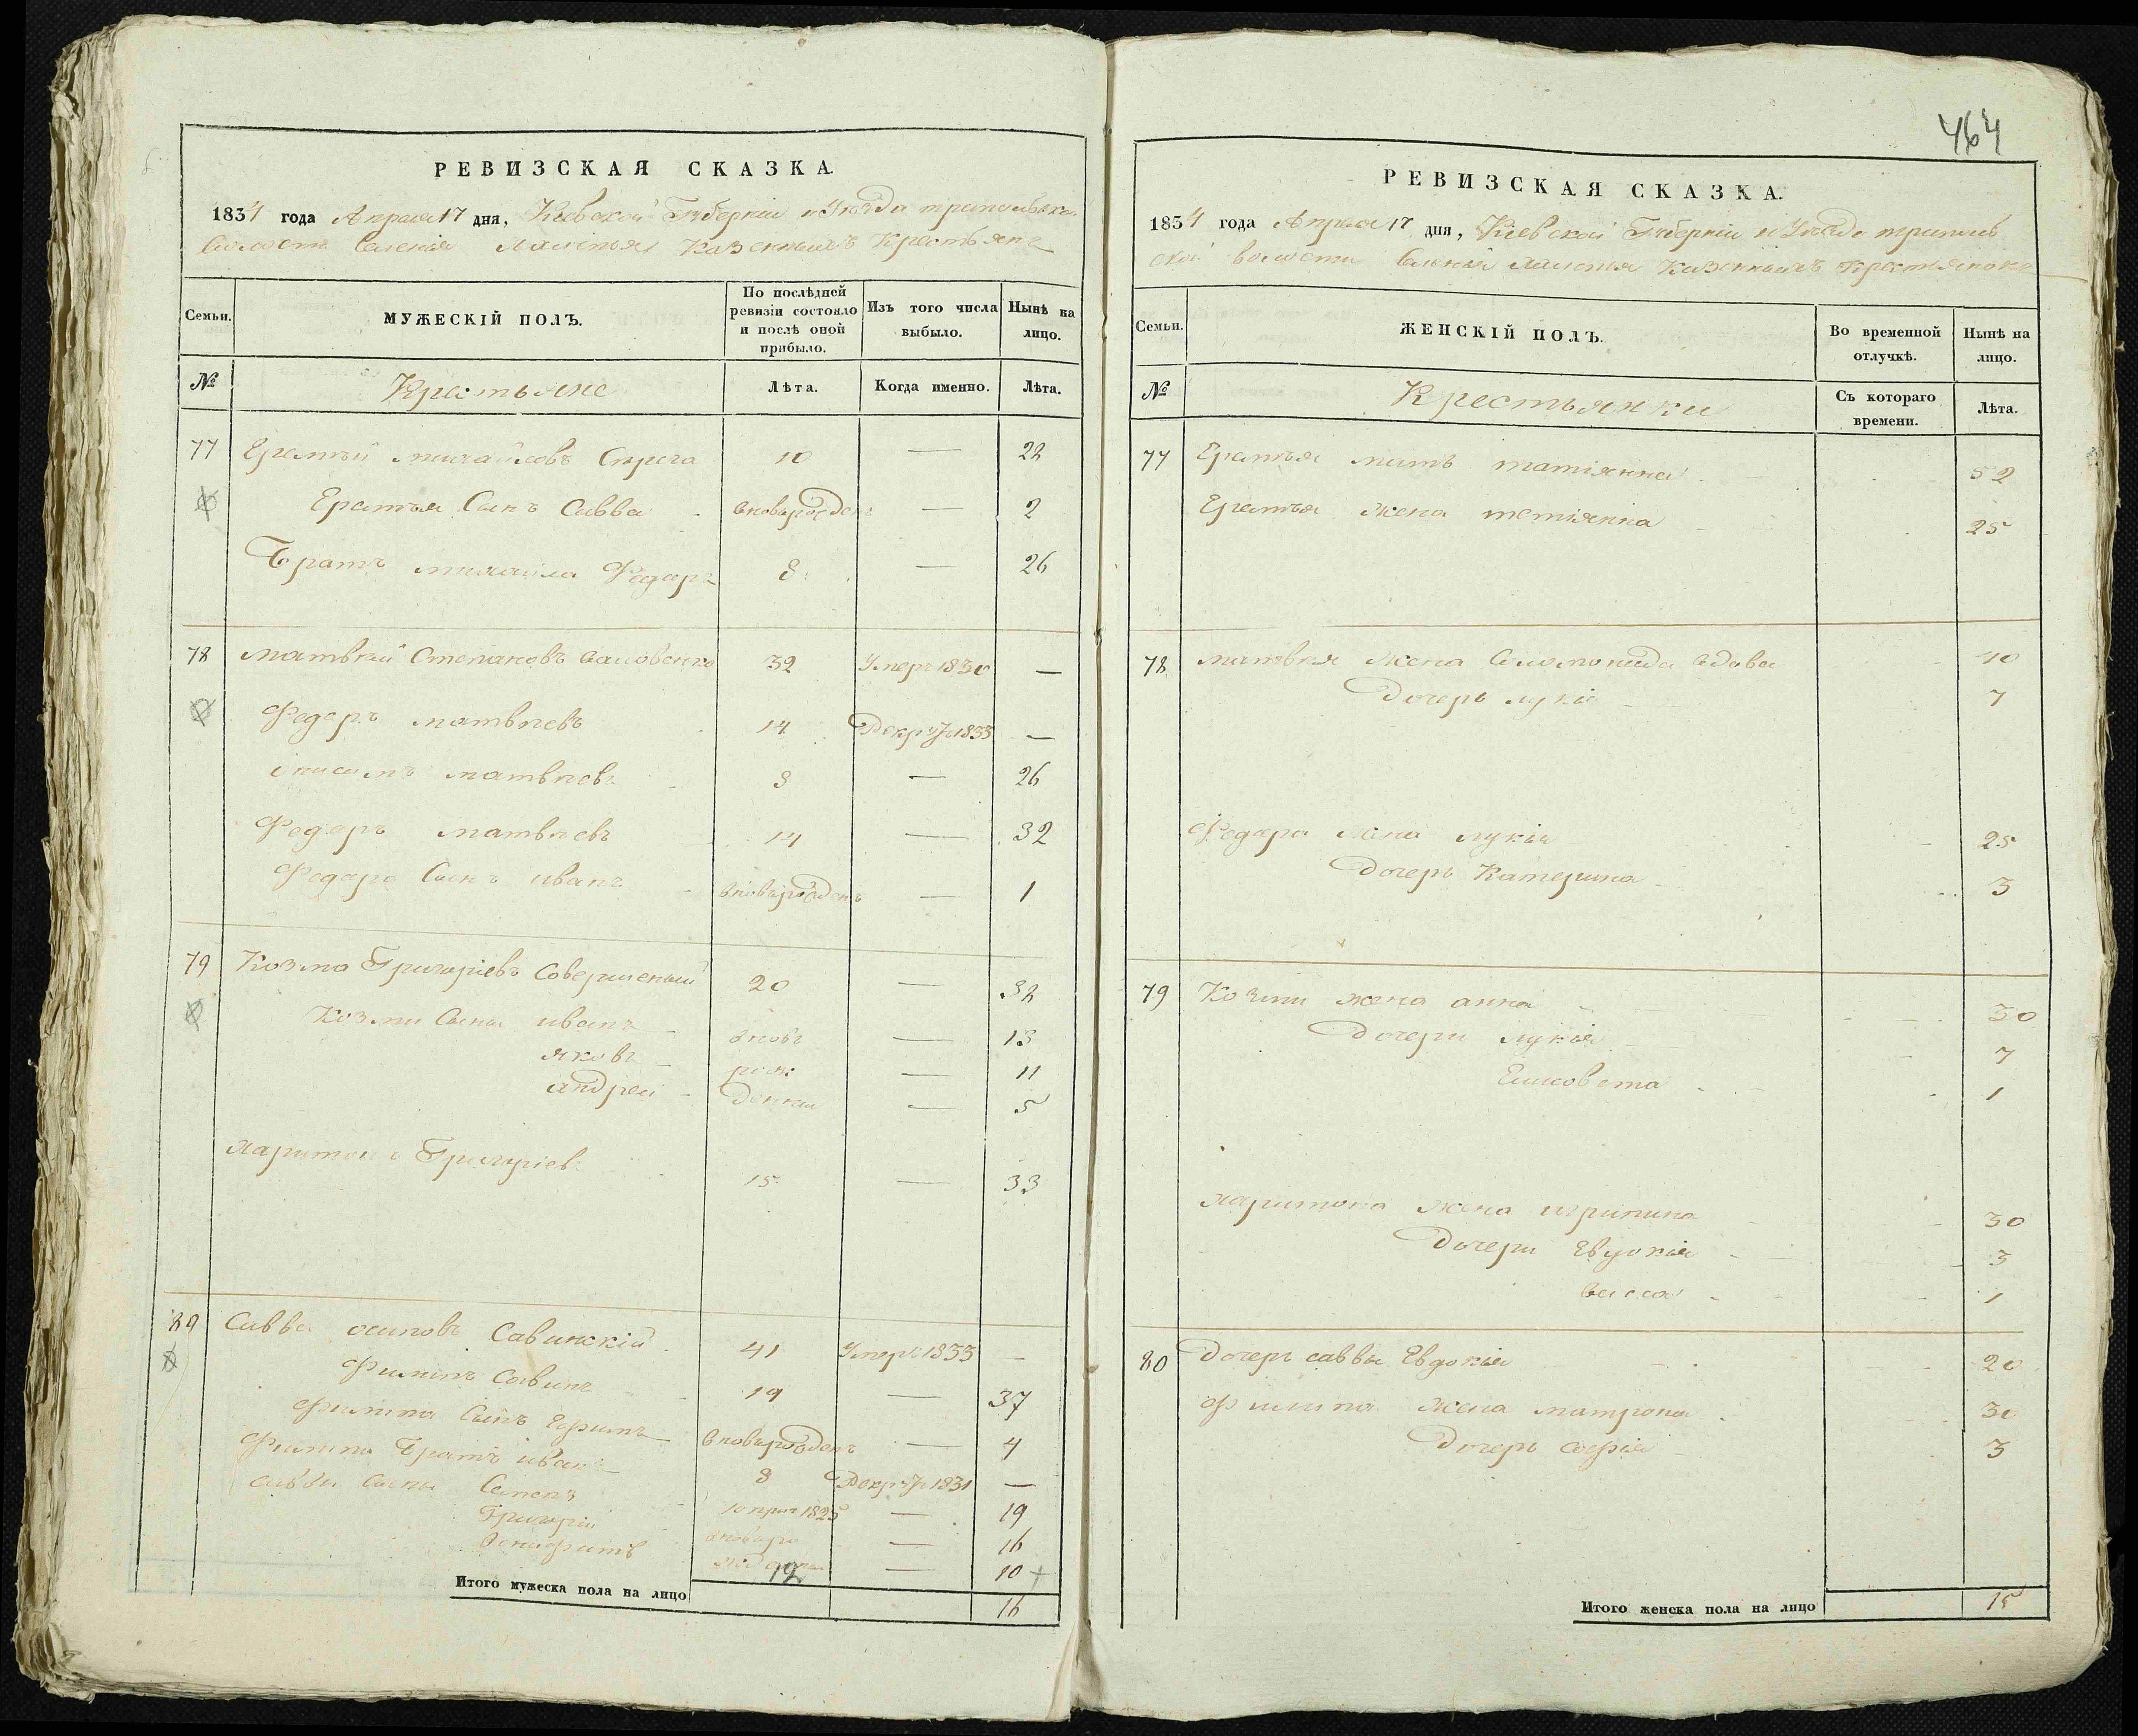 464
РЕВИЗСКАЯ СКАЗКА.
1834 года Апреля 17 дня, Киевской Губернии и Уезда трипольской
волости Селения Казенныхъ Крестьянъ
Семьи.
МУЖЕСКІЙ ПОЛЪ.
По послѣдней ревизіи состояло и послѣ оной прибыло.
Изъ того числа выбыло.
Нынѣ на лицо.
№
Крестьяне
Лѣта.
Когда именно.
Лѣта.
77 Еремѣй михайловъ 10 — 28
Еремѣя Сынъ Савва вноворожденъ — 2
Братъ михайла Федоръ 8 — 26
78 матвѣй Степановъ 32 Умеръ 1830 —
Федоръ матвѣевъ 14 1833 —
матвѣевъ 8 — 26
Федоръ матвѣевъ 14 — 32
Федора Сынъ иванъ вноворожденъ — 1
79 Козма Григоріевъ Совершеный 20 — 32
Козми Сыны иванъ вновь — 13
яковъ рож — 11
андрей денніи — 5
харитонъ Григоріевъ 15 — 33
80 Савва осиповъ Савинскій 41 Умеръ 1833 —
Филипъ Савинъ 19 — 37
Филипа Сынъ Ефимъ вноворожденъ — 4
Филипа Братъ иванъ 8 1831 —
саввы сыны Семенъ 10 1825 — 19
Григорій — 16
— 10
12
Итого мужеска пола на лицо 16
РЕВИЗСКАЯ СКАЗКА.
1834 года Апреля 17 дня, Киевской Губерніи и Уезда триполь
ской волости Казенныхъ Крестьянокъ
Семьи.
ЖЕНСКІЙ ПОЛЪ.
Во временной отлучкѣ.
Нынѣ на лицо.
№
Крестьянки
Съ котораго времени.
Лѣта.
77 Еремѣя мать татіянна 52
Еремѣя жена тетіянна 25
78 матвѣя жена Соломонида вдова 40
Дочерь лукіа 7
Федора жена лукія 25
Дочерь Катерина 3
79 Козми жена анна 30
Дочери лукія 7
Елисовета 1
харитона жена 30
Дочери Евдокія 3
васса 1
80 Дочерь саввы Евдокія 20
Филипа жена матрона 30
Дочерь софія 3
Итого женска пола на лицо 15